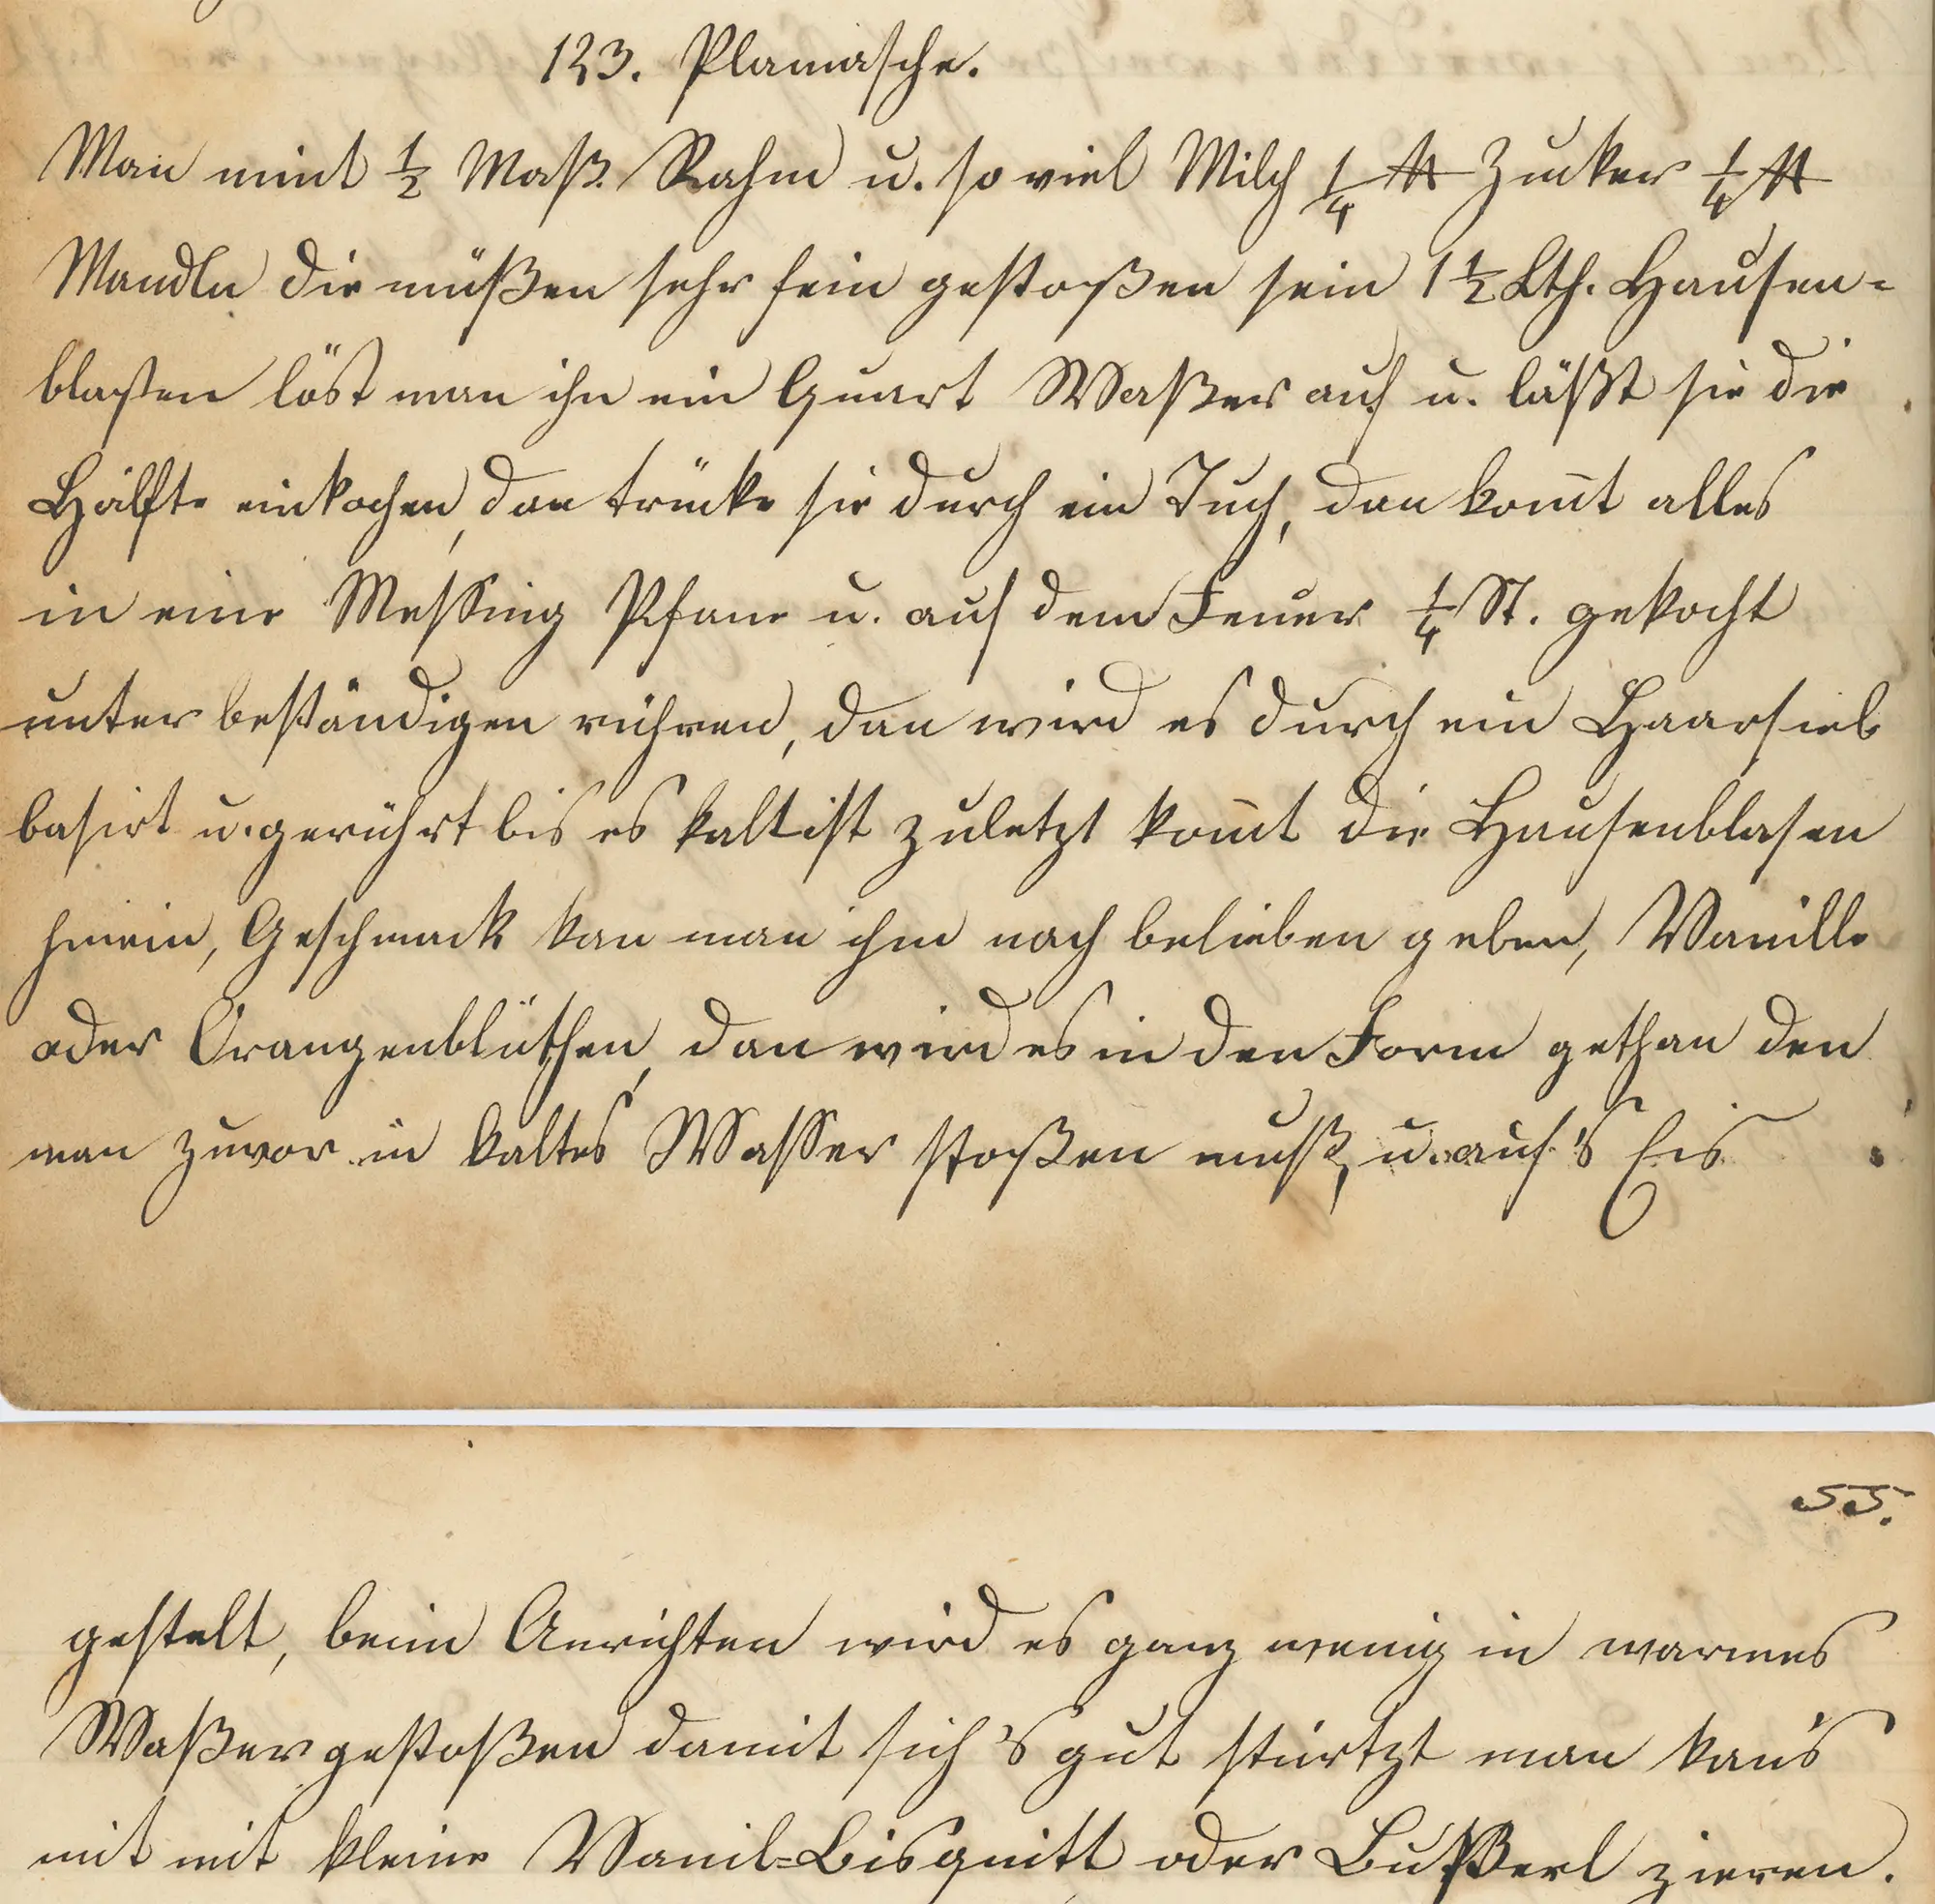 123. Plamasche.
Man nimt ½ Maß Rahm u. so viel Milch ¼ ℔ Zucker ¼ ℔
Mandln die müßen sehr fein gestoßen sein 1½ Lth. Hausen-
blaßen löst man ihn ein Quart Waßer auf u. läßt sie die
Hälfte einkochen, dan trücke sie durch ein Tuch, dan kom̄t alles
in eine Messing Pfane u. auf dem Feuer ¼ St. gekocht
unter beständigen rühren, dan wird es durch ein Haarsieb
basirt u. gerührt bis es kalt ist zuletzt kom̄t die Hausenblasen
hinein, Geschmack kan man ihm nach belieben geben, Vanille
oder Orangenblüthen, dan wird es in den Form gethan den
man zuvor in kaltes Wasser stoßen muß, u. auf's Eis
55.
gestelt, beim Anrichten wird es ganz wenig in warmes
Waßer gestoßen damit sich's gut stürtzt man kan's
mit mit kleine Vanil-Bisquitt oder Bußerl zieren.